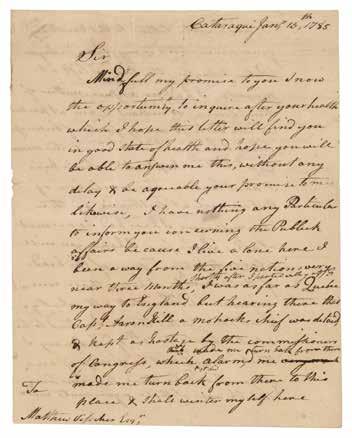 Cataraqui Jany. 13th 1785
Sir
Mindfull my promise to you I now
the opportunity to inquire after your health
which I hope this letter will find you
in good State of health and hope you will
be able to answer me this, without any
delay & be agreeable your promise to me
likewise, I have nothing any Particular
to inform you concerning the Publick
affairs because I live alone here I
been away from the five nations very
near three Months, I was as far as Quebec
my way to England but hearing there this
Capt. a mohawk Chief was detaid
& kept as hostage by the commissioners
of Congress, which alarmed me
made me turn back from there to this
place & shall winter myself here
To
Mathew Esqr.